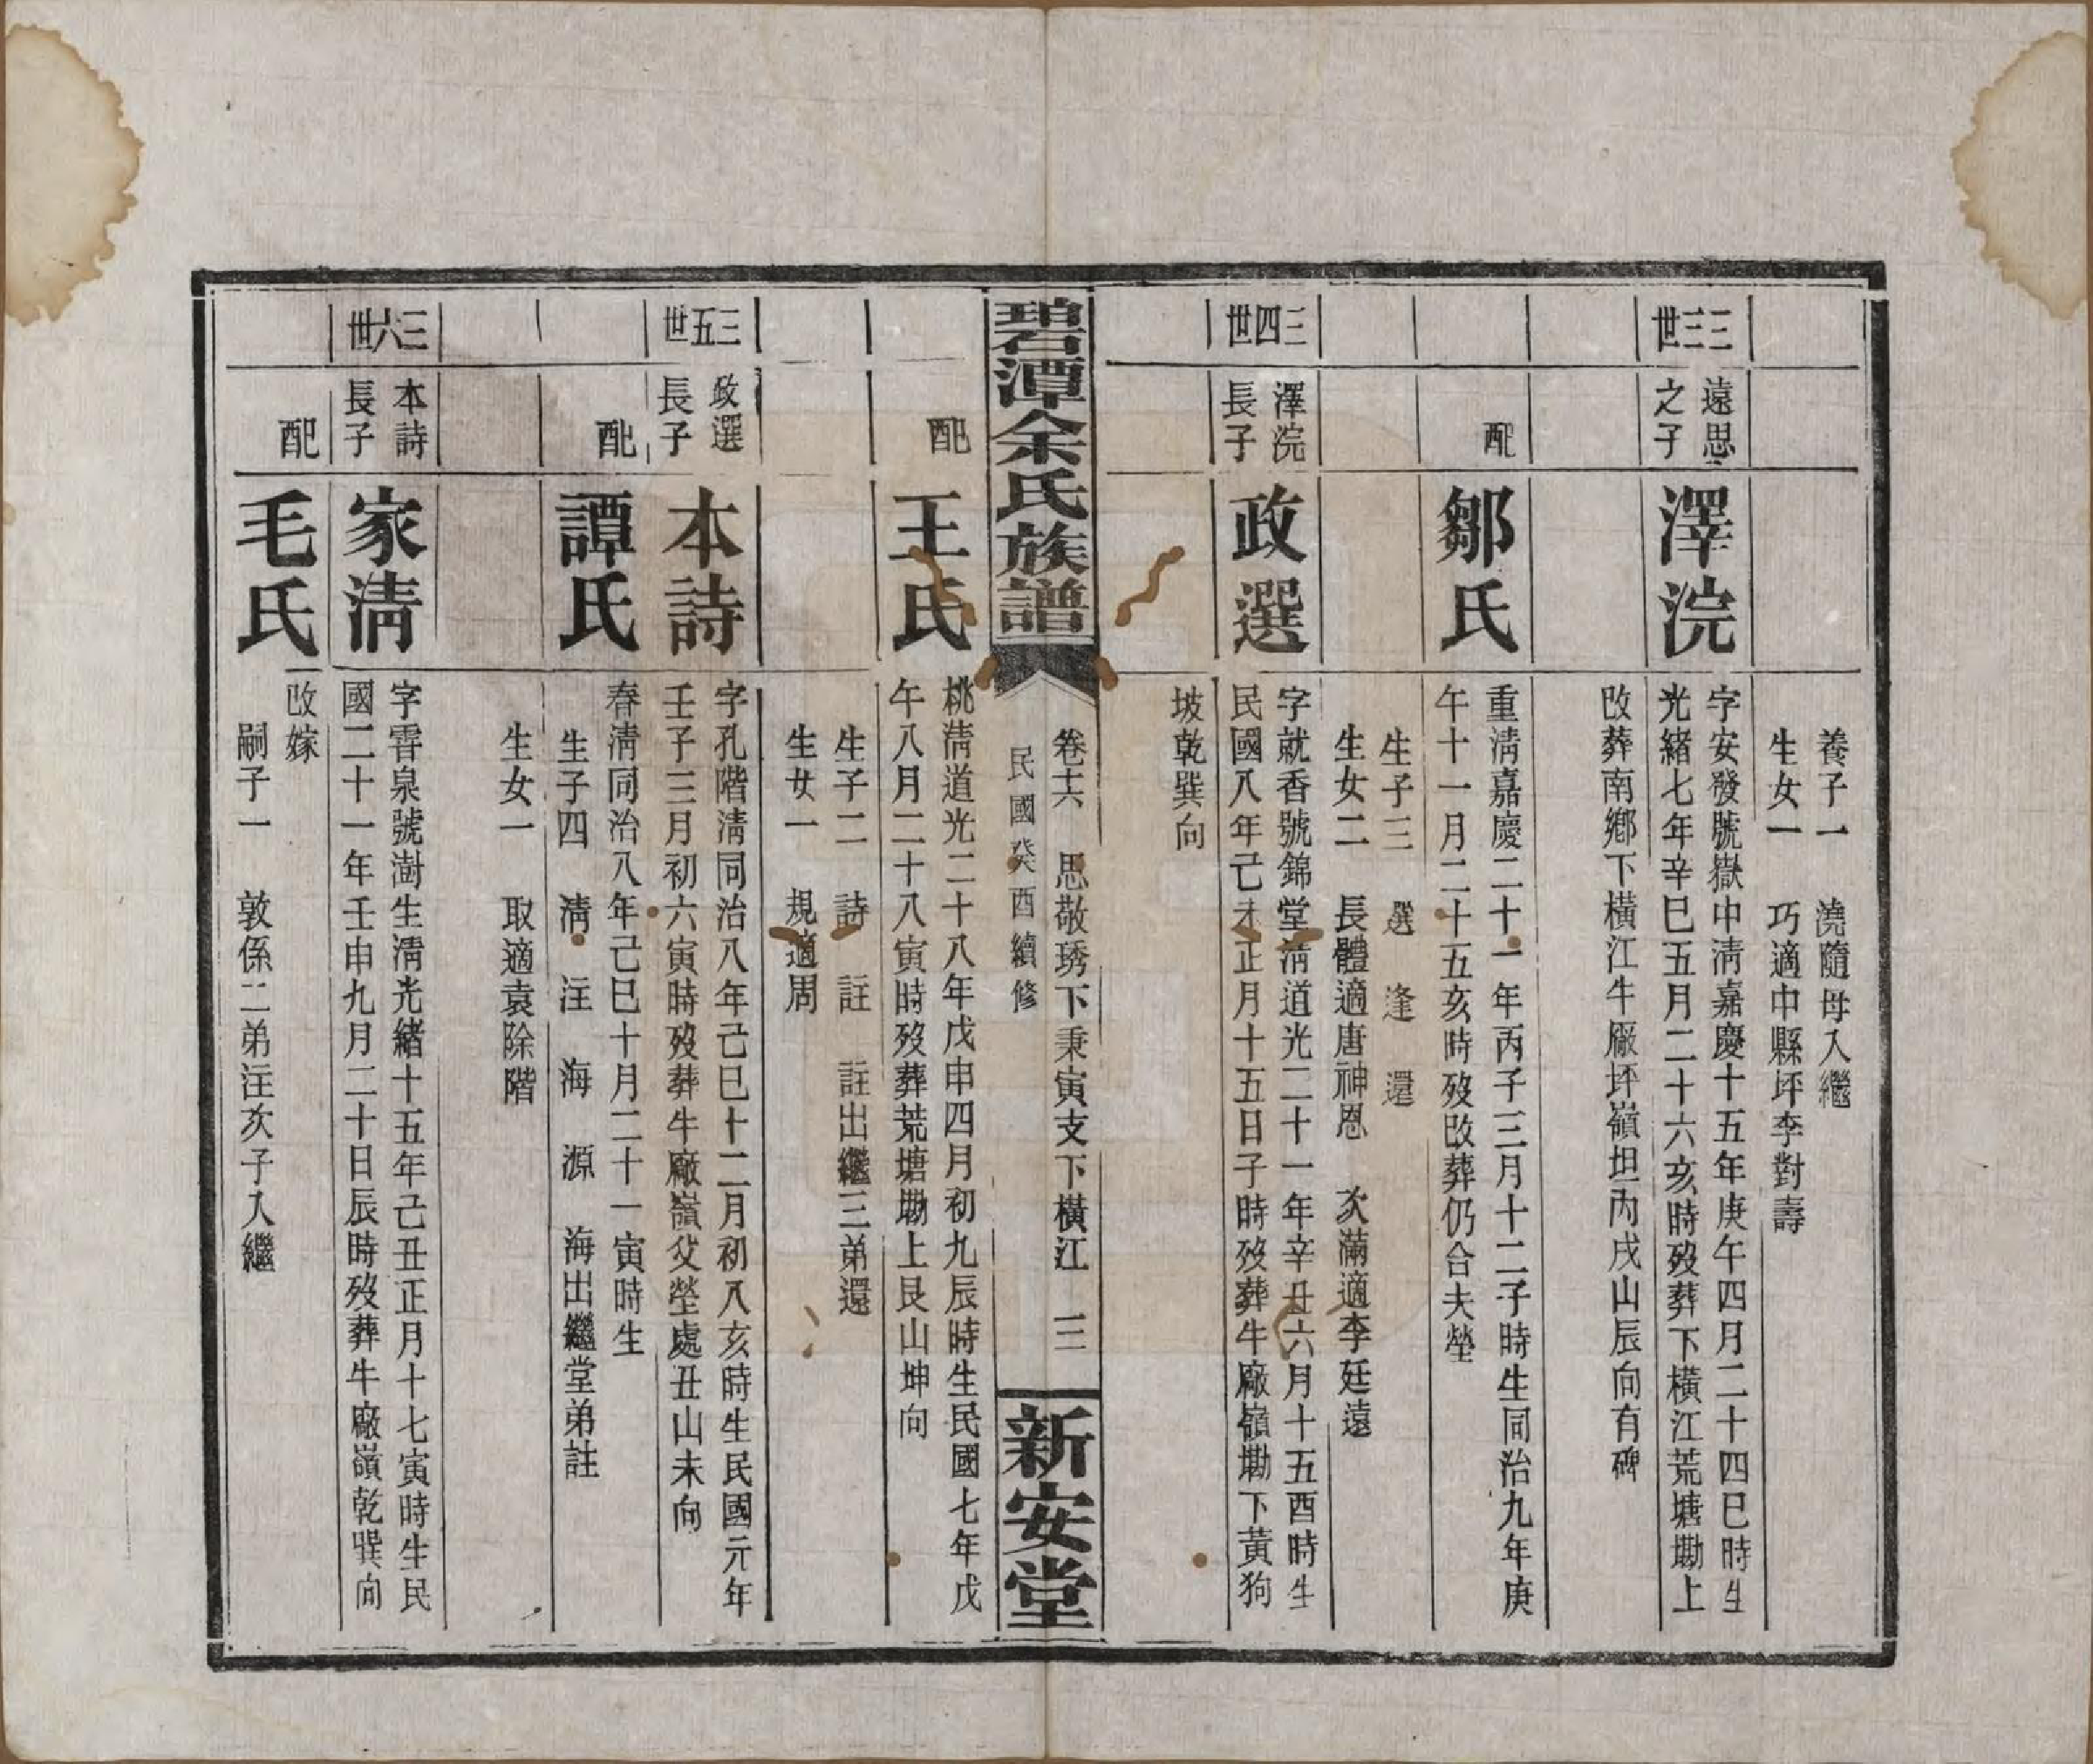 養子一　澆隨母入繼
生女一　巧適中縣坪李對壽
三三世
遠思之子
澤浣
字安發號嶽中淸嘉慶十五年庚午四月二十四巳時生
光緒七年辛巳五月二十六亥時歿葬下橫江荒塘墈上
改葬南鄉下橫江牛廠坪嶺坦丙戌山辰向有碑
配
鄒氏
重淸嘉慶二十一年丙子三月十二子時生同治九年庚
午十一月二十五亥時歿改葬仍合夫塋
生子三　選　逢　還
生女二　長體適唐神恩　次滿適李廷遠
三四世
澤浣長子
政選
字就香號錦堂淸道光二十一年辛丑六月十五酉時生
民國八年己未正月十五日子時歿葬牛廠嶺墈下黃狗
坡乾巽向
碧潭余氏族譜
卷十六　思敬琇下秉寅支下橫江　三
民國癸酉續修
新安堂
配
王氏
桃淸道光二十八年戊申四月初九辰時生民國七年戊
午八月二十八寅時歿葬荒塘墈上艮山坤向
生子二　詩　註　註出繼三弟還
生女一　規適周
三五世
政選長子
本詩
字孔階淸同治八年己巳十二月初八亥時生民國元年
壬子三月初六寅時歿葬牛廠嶺父塋處丑山未向
配
譚氏
春淸同治八年己巳十月二十一寅時生
生子四　淸　注　海　源　海出繼堂弟註
生女一　取適袁除階
三六世
本詩長子
家淸
字霄泉號澍生淸光緒十五年己丑正月十七寅時生民
國二十一年壬申九月二十日辰時歿葬牛廠嶺乾巽向
配
毛氏
改嫁
嗣子一　敦係二弟注次子入繼